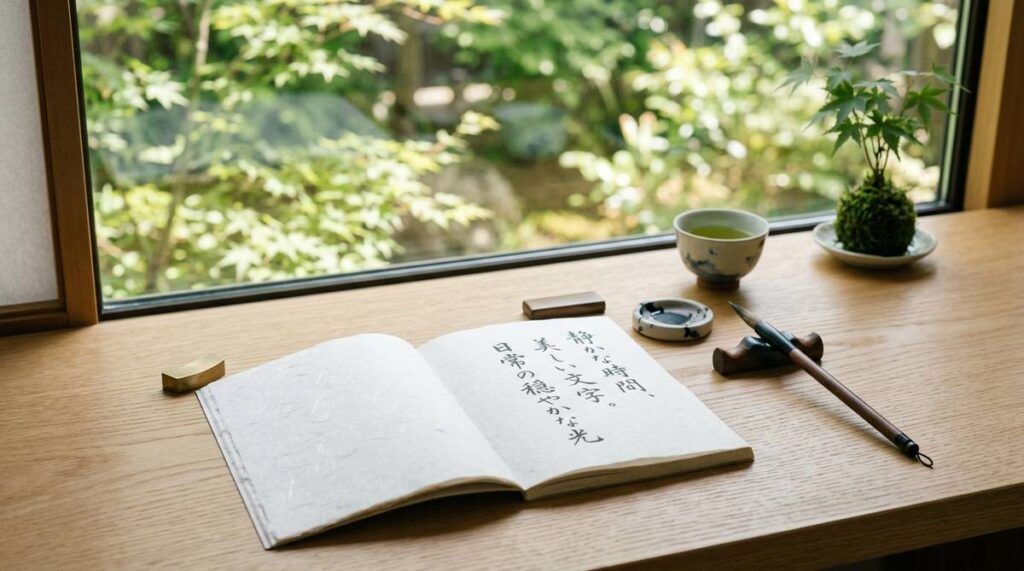 静かな時間、
美しい文字。
日常の穏やかな光